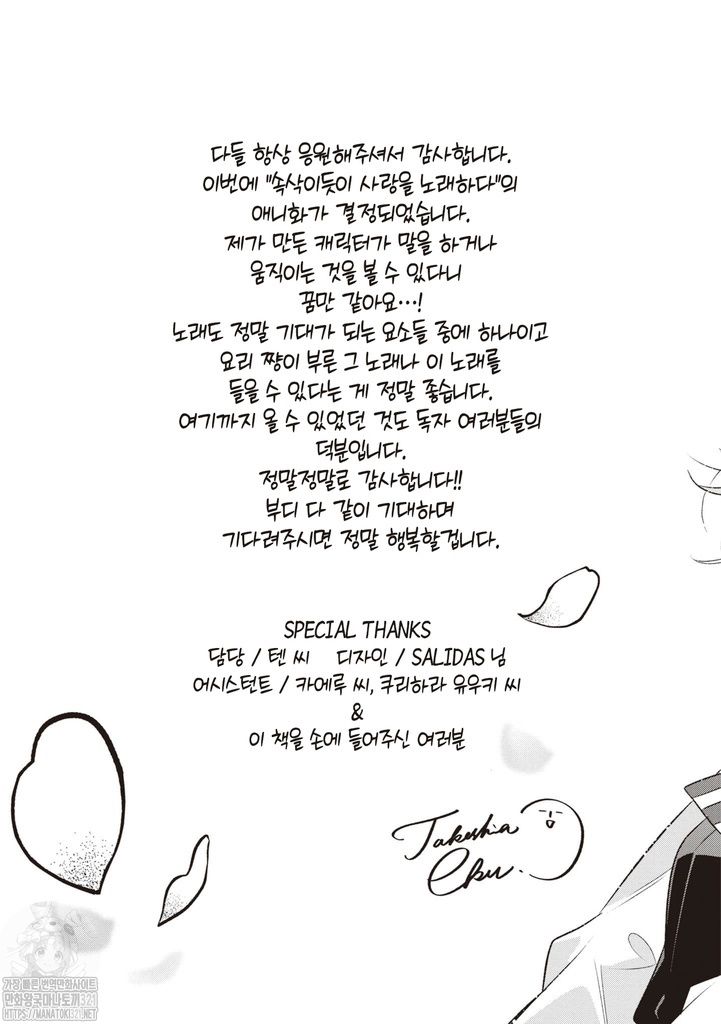 다들 항상 응원해주셔서 감사합니다.
이번에 "속삭이듯이 사랑을 노래하다"의
애니화가 결정되었습니다.
제가 만든 캐릭터가 말을 하거나
움직이는 것을 볼 수 있다니
꿈만 같아요…!
노래도 정말 기대가 되는 요소들 중에 하나이고
요리 쨩이 부른 그 노래나 이 노래를
들을 수 있다는 게 정말 좋습니다.
여기까지 올 수 있었던 것도 독자 여러분들의
덕분입니다.
정말정말로 감사합니다!!
부디 다 같이 기대하며
기다려주시면 정말 행복할겁니다.
SPECIAL THANKS
담당 / 텐 씨 디자인 / SALIDAS 님
어시스턴트 / 카에루 씨, 쿠리하라 유우키 씨
&
이 책을 손에 들어주신 여러분
Takeshima
Eku.
가장 빠른 번역만화사이트
만화왕국마나토끼321
HTTPS://MANATOKI321.NET